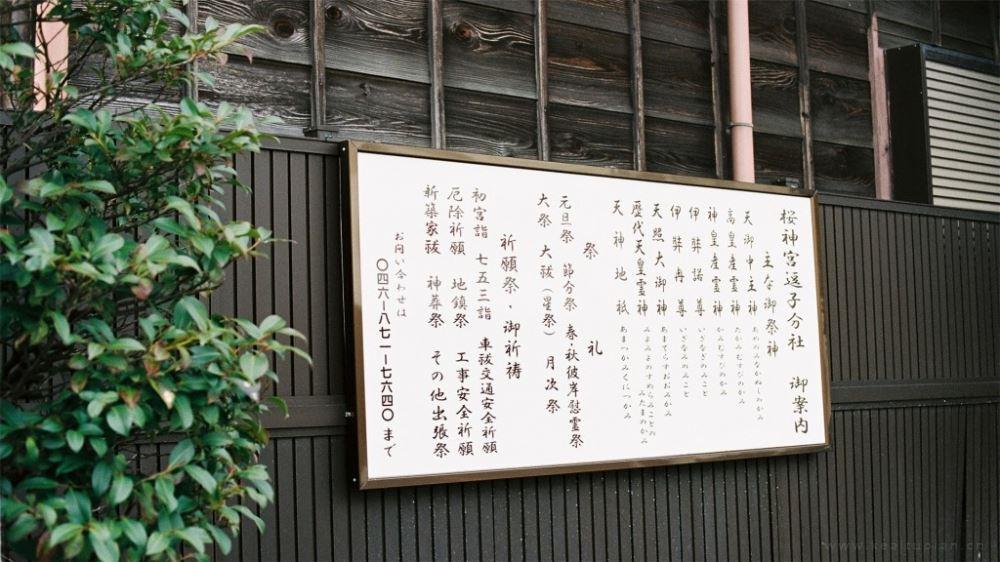 桜神宮逗子分社 御案内
主な御祭神
天御中主神 あめのみなかぬしのかみ
高皇産霊神 たかみむすびのかみ
神皇産霊神 かみむすびのかみ
伊弉諾尊 いざなぎのみこと
伊弉冉尊 いざなみのみこと
天照大御神 あまてらすおおみかみ
歴代天皇霊神 みよみよのすめらみことのみたまのかみ
天神地祇 あまつかみくにつかみ
祭 礼
元旦祭 節分祭 春・秋彼岸慰霊祭
大祭 大祓(星祭) 月次祭
祈願祭・御祈祷
初宮詣 七五三詣 車祓交通安全祈願
厄除祈願 地鎮祭 工事安全祈願
新築家祓 神葬祭 その他出張祭
お問い合わせは
〇四六ー八七一ー七六四〇まで